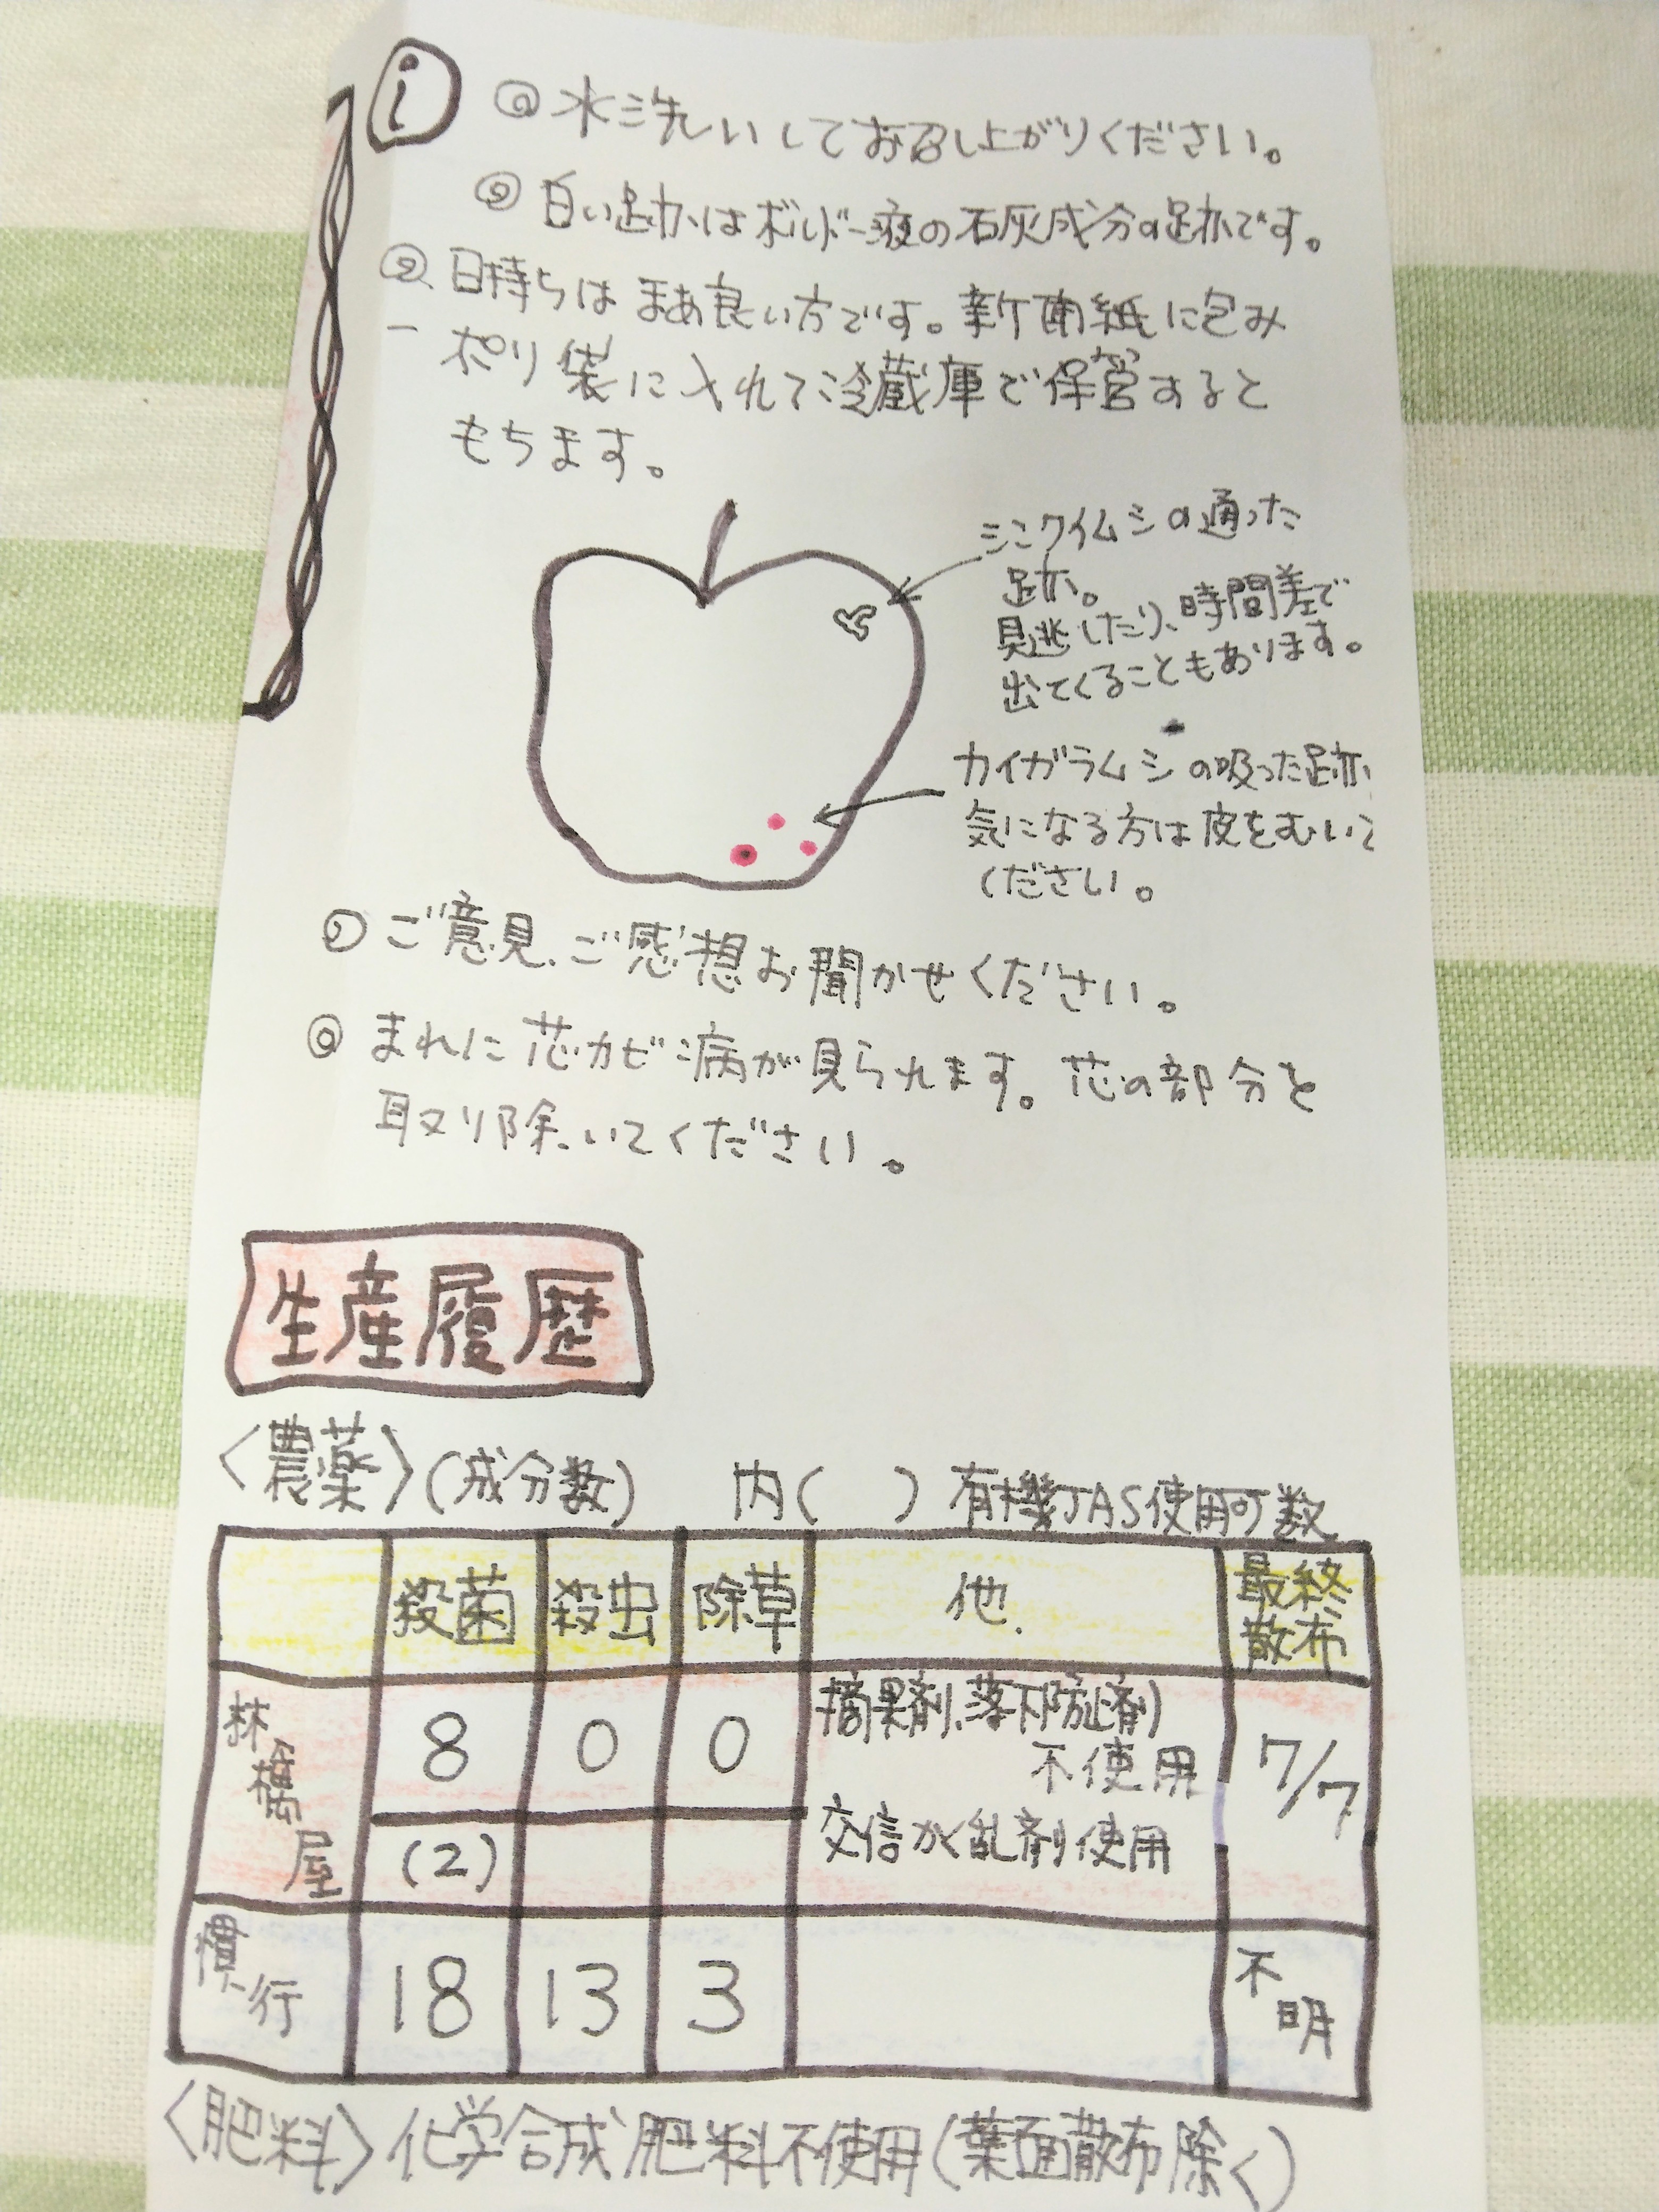 i
◎水洗いしてお召し上がりください。
◎白い跡はボルドー液の石灰成分の跡です。
◎日持ちはまあ良い方です。新聞紙に包み
ポリ袋に入れて冷蔵庫で保管すると
もちます。
シンクイムシの通った
跡。
見逃したり、時間差で
出てくることもあります。
カイガラムシの吸った跡
気になる方は皮をむいて
ください。
◎ご意見、ご感想お聞かせください。
◎まれに芯カビ病が見られます。芯の部分を
取り除いてください。
生産履歴
<農薬>(成分数) 内( )有機JAS使用可数
殺菌 殺虫 除草 他. 最終散布
林檎屋 8 0 0 摘果剤、落下防止剤 不使用 7/7
(2) 交信かく乱剤使用
慣行 18 13 3 不明
<肥料>化学合成肥料不使用(葉面散布除く)